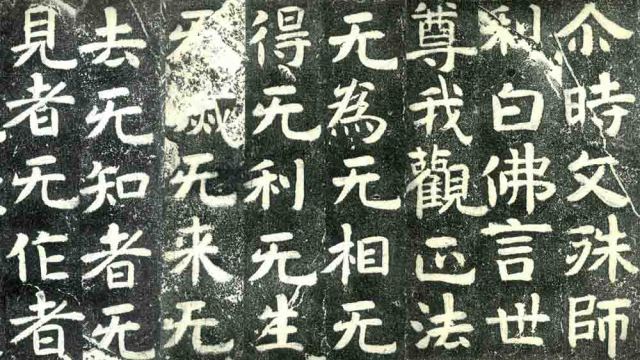 尒時文殊師
利白佛言世
尊我觀正法
无為无相无
得无利无生
无滅无来无
去无知者无
見者无作者